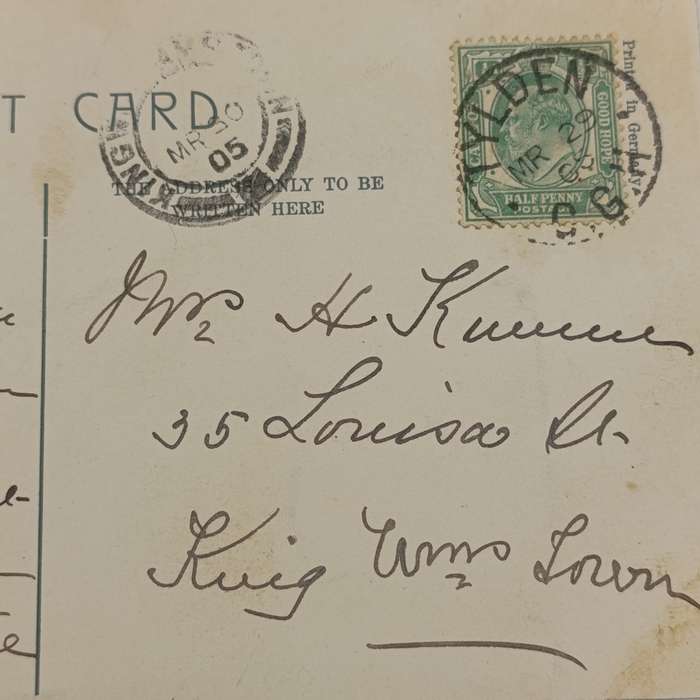 T CARD
THE ADDRESS ONLY TO BE
WRITTEN HERE
MR 30
05
KING
TOWN
TYLDEN
MR 29
05
C.G.H
CAPE OF GOOD HOPE
HALF PENNY
POSTAGE
Printed in Germany.
Mrs H
35 Louisa St.
King Wms Town